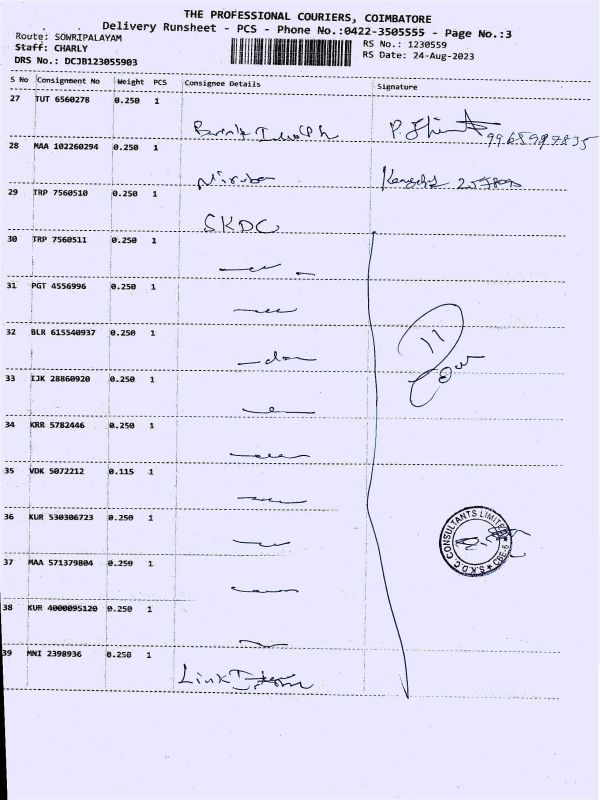 THE PROFESSIONAL COURIERS, COIMBATORE
Delivery Runsheet - PCS - Phone No.:0422-3505555 - Page No.:3
Route: SOWRIPALAYAM
RS No.: 1230559
Staff: CHARLY
RS Date: 24-Aug-2023
DRS No.: DCJB123055903
S No Consignment No Weight PCS Consignee Details Signature
27 TUT 6560278 0.250 1
28 MAA 102260294 0.250 1
29 TRP 7560510 0.250 1
SKDC
30 TRP 7560511 0.250 1
31 PGT 4556996 0.250 1
32 BLR 615540937 0.250 1
33 IJK 28860920 0.250 1
34 KRR 5782446 0.250 1
35 VDK 5072212 0.115 1
36 KUR 530306723 0.250 1
S.K.D.C CONSULTANTS LIMITED CBE-6
37 MAA 571379804 0.250 1
38 KUR 4000095120 0.250 1
39 MNI 2398936 0.250 1
Link